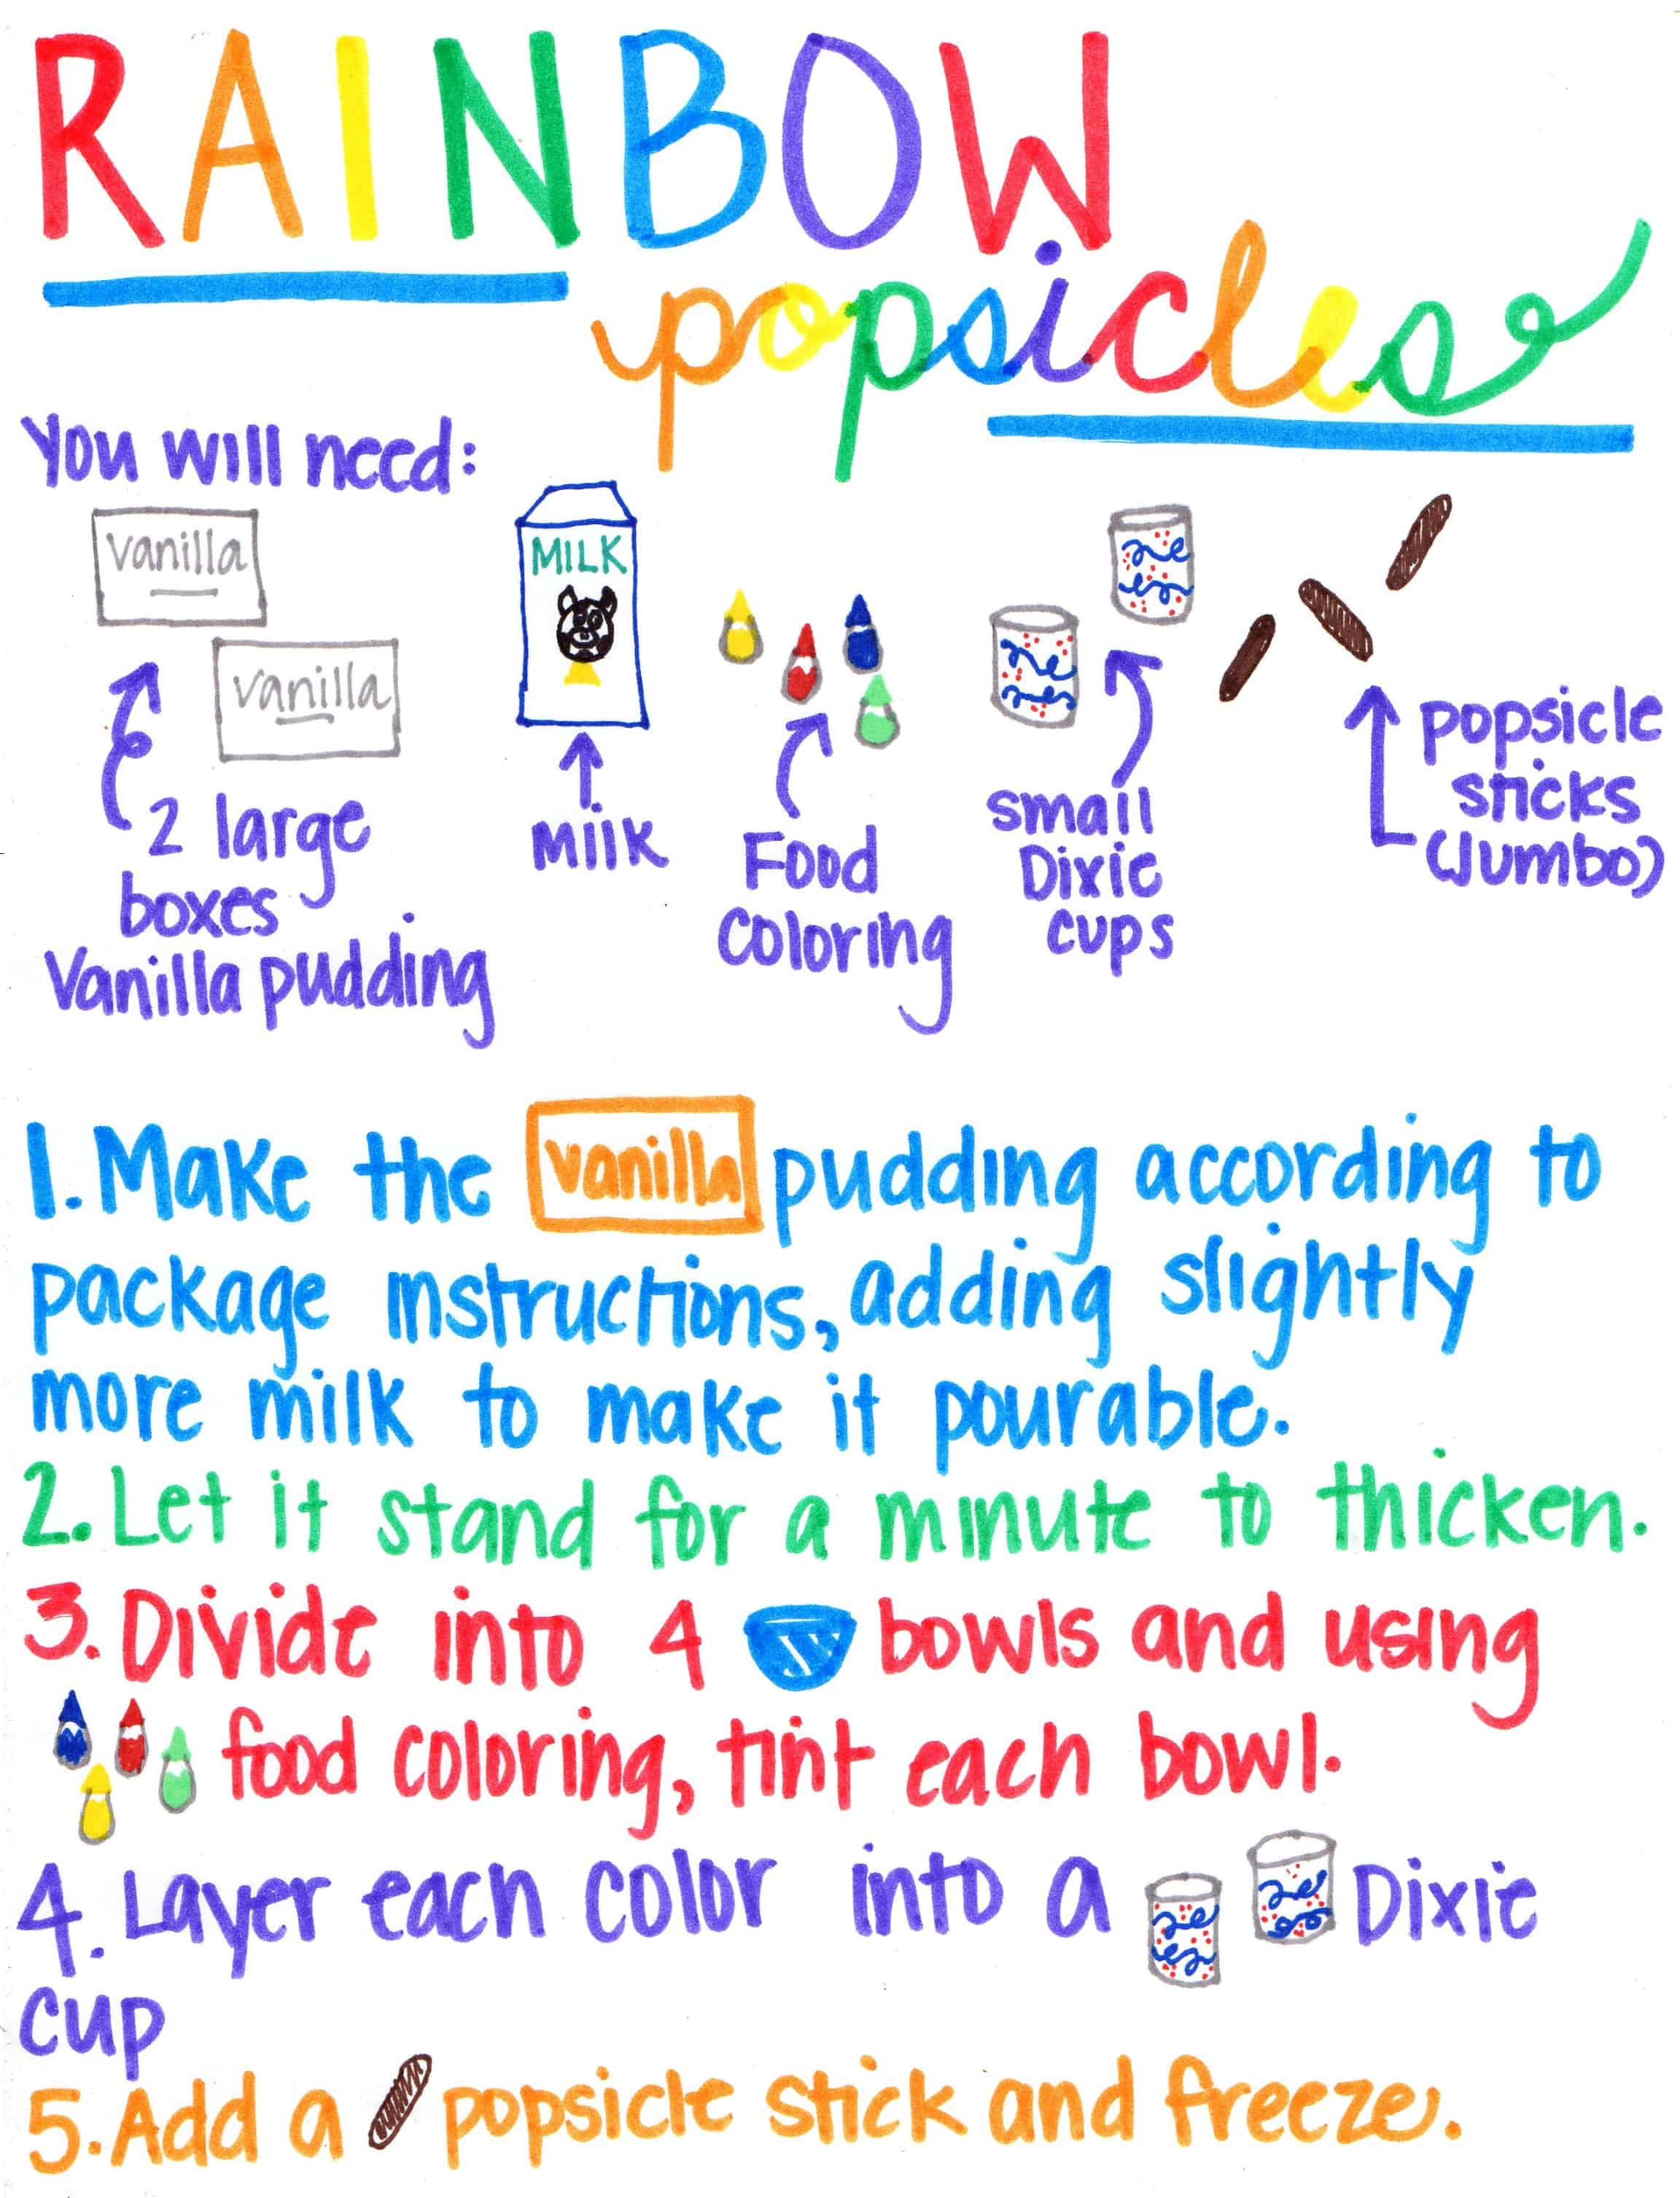 RAINBOW
popsicles
You will need:
Vanilla
Vanilla
MILK
2 large
boxes
Vanilla pudding
Milk
Food
Coloring
Small
Dixie
Cups
popsicle
sticks
(Jumbo)
1. Make the vanilla pudding according to
package instructions, adding slightly
more milk to make it pourable.
2. Let it stand for a minute to thicken.
3. Divide into 4 bowls and using
food coloring, tint each bowl.
4. Layer each color into a Dixie
cup
5. Add a popsicle stick and freeze.